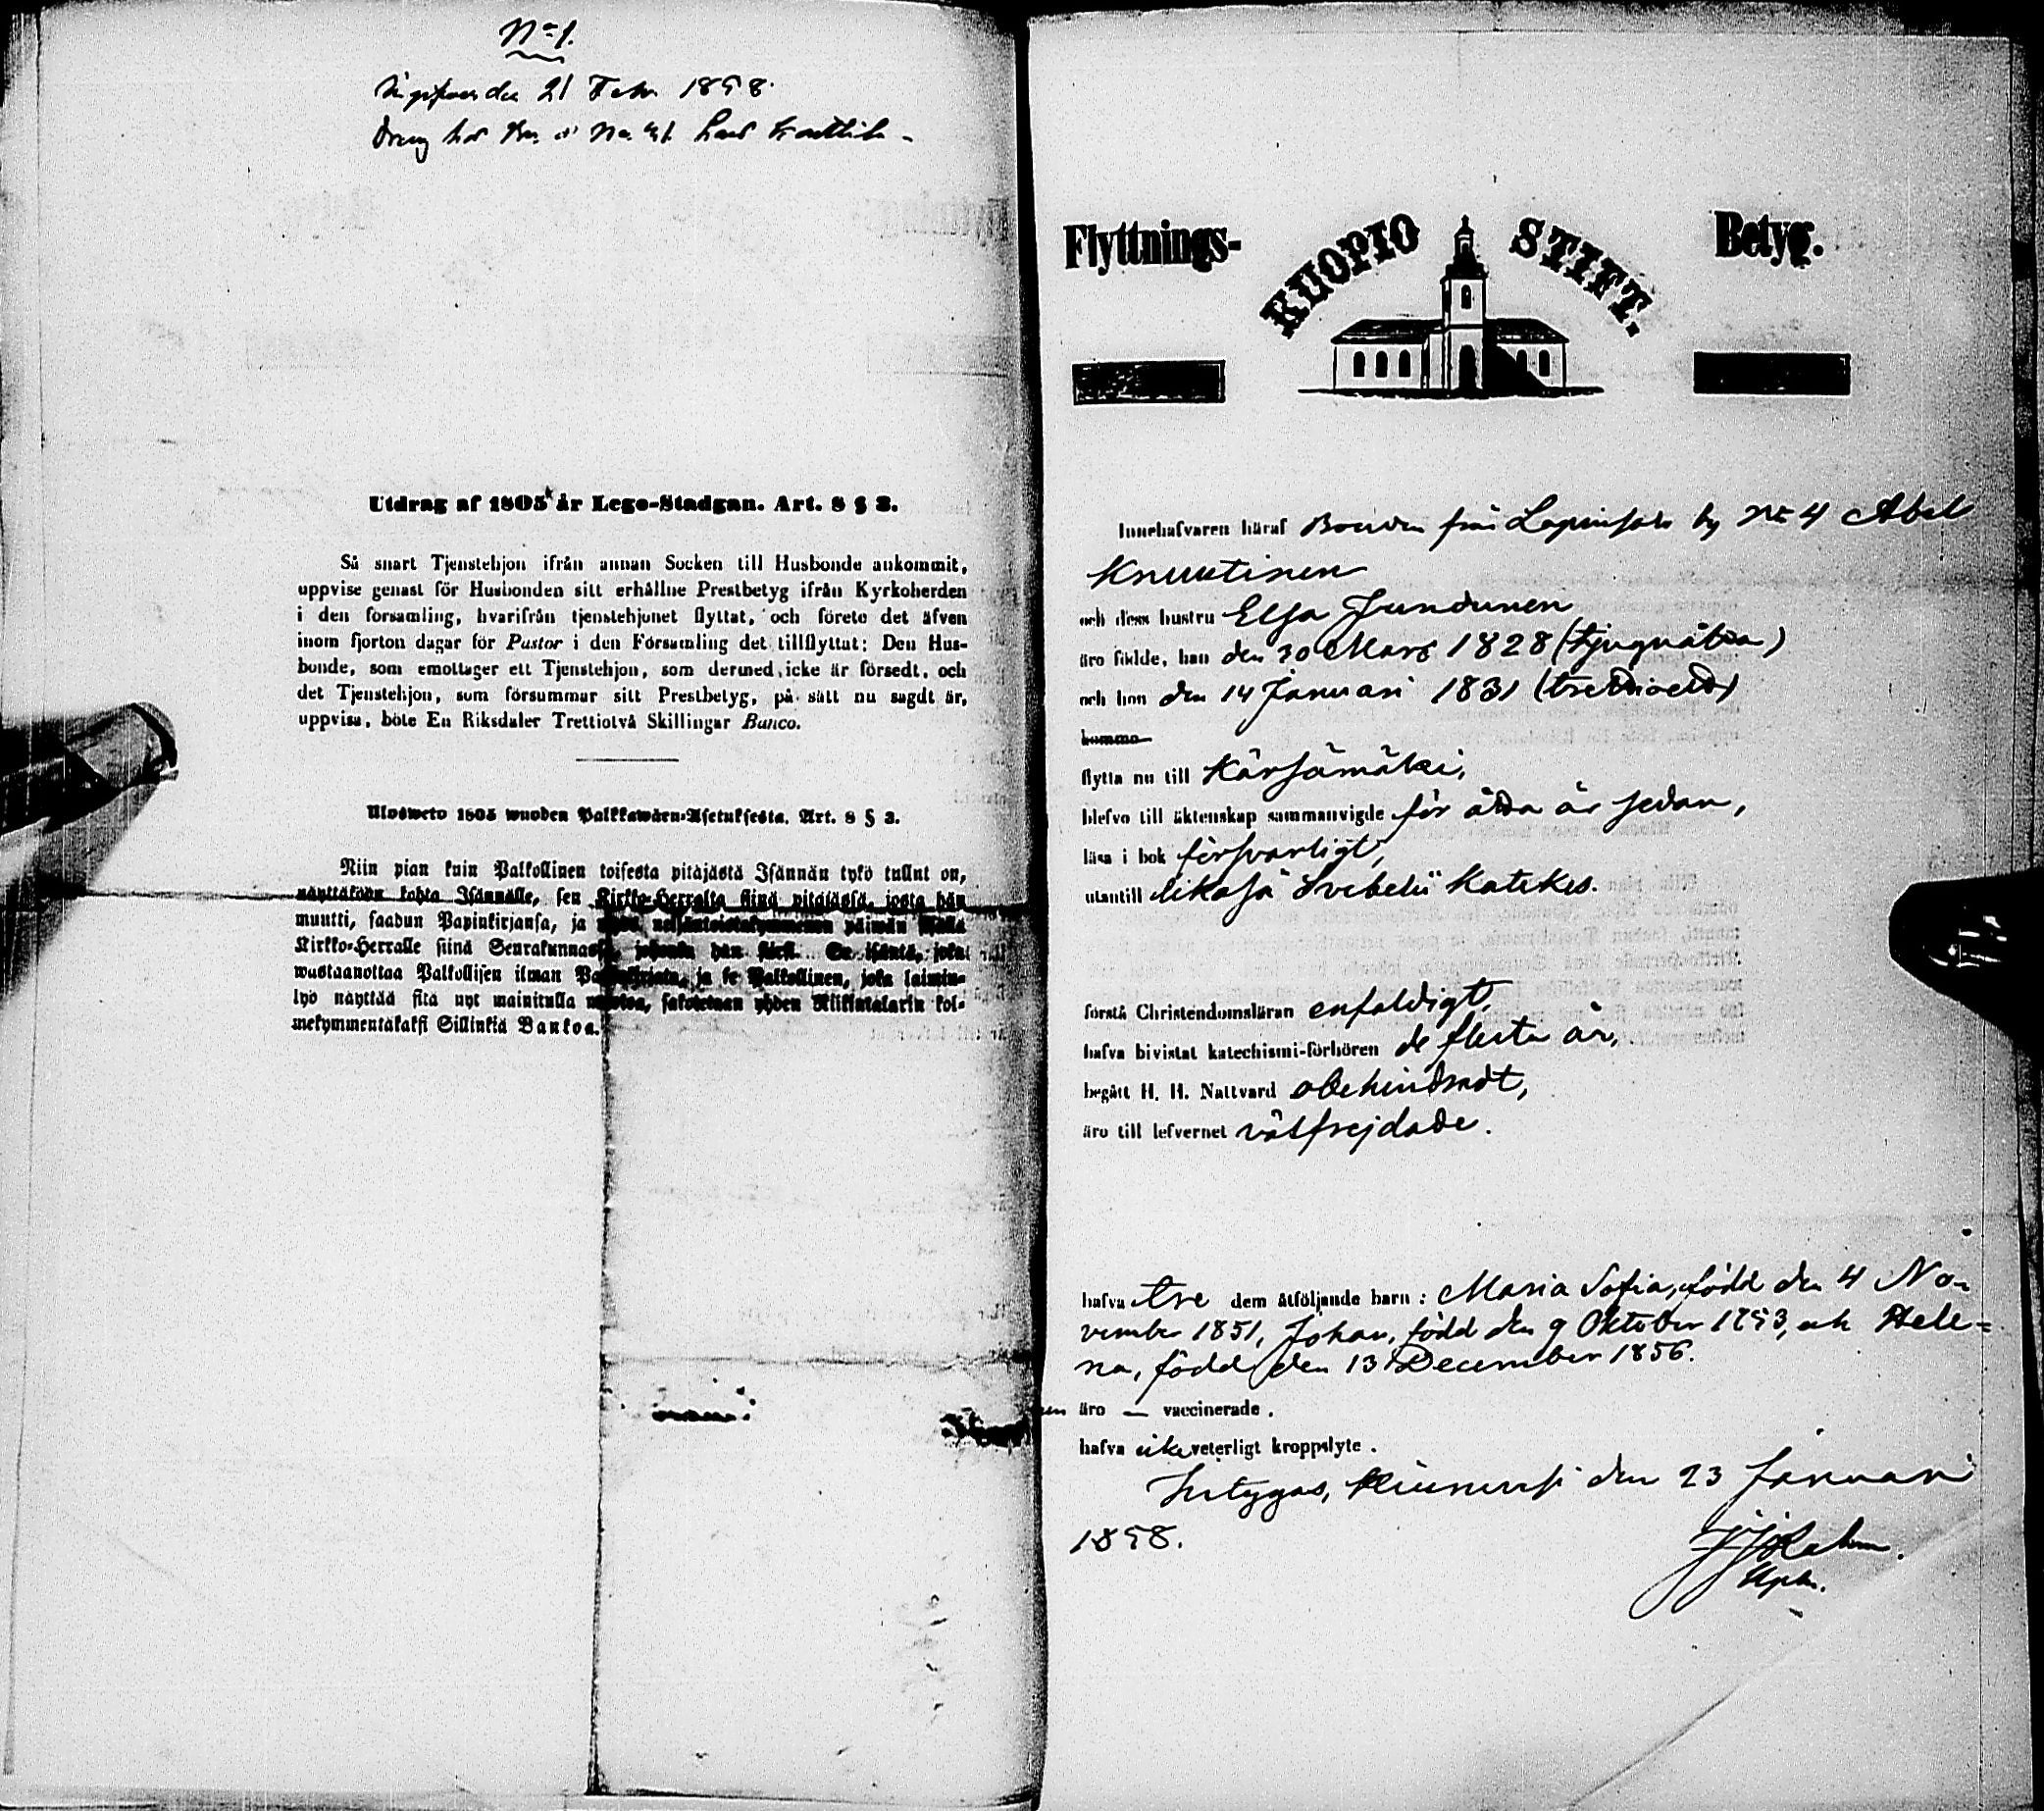 No 1.
21 Febr 1858.
Flyttnings-
KUOPIO STIFT.
Betyg.
Utdrag af 1805 år Lego-Stadgan. Art. 8 § 3.
Så snart Tjenstehjon ifrån annan Socken till Husbonde ankommit,
uppvise genast för Husbonden sitt erhållne Prestbetyg ifrån Kyrkoherden
i den forsamling, hvarifrån tjenstehjonet flyttat, och förete det äfven
inom fjorton dagar för Pastor i den Församling det tillflyttat; Den Hus-
bonde, som emottager ett Tjenstehjon, som dermed icke är försedt, och
det Tjenstehjon, som försummar sitt Prestbetyg, på sätt nu sagdt är,
uppvisa, böte En Riksdaler Trettiotvå Skillingar Banco.
Ulosweto 1805 wuoden Palkkawäen-Asetuksesta. Art. 8 § 3.
Niin pian kuin Palkollinen toisesta pitäjästä Isännän tykö tullut on,
näyttäköön kohta Isännälle, sen Kirkko-Herralta siinä pitäjässä, josta hän
muutti, saadun Papinkirjansa, ja neljäntoistakymmenen päiwän
Kirkko-Herralle siinä Seurakunnassa, johonka hän Se isäntä, joka
wastaanottaa Palkollisen ilman ja se Palkollinen, joka laimin-
lyö näyttää sitä nyt mainitulla sakotetaan yhden Riikintalarin kol-
mekymmentäkaksi Sillinkiä Bankoa.
Innehafvaren häraf Bonden från by No 4 Abel
Knuutinen
och dess hustru Elsa Jundunen
äro födde, han den 30 Mars 1828 (tjuguåtta)
och hon den 14 Januari 1831 (trettioett)
komma
flytta nu till Kärsämäki,
blefvo till äktenskap sammanvigde för åtta år sedan,
läsa i bok försvarligt,
utantill likaså Svebelii Katekes.
förstå Christendomsläran enfaldigt,
hafva bivistat katechismi-förhören de flesta år,
begått H. H. Nattvard obehindradt,
äro till lefvernet välfrejdade.
hafva tre dem åtföljande barn: Maria Sofia, född den 4 No-
vember 1851, Johan, född den 9 Oktober 1853, och Hele-
na, född den 13 December 1856.
äro — vaccinerade.
hafva icke veterligt kroppslyte.
Intygas, den 23 Januari
1858.